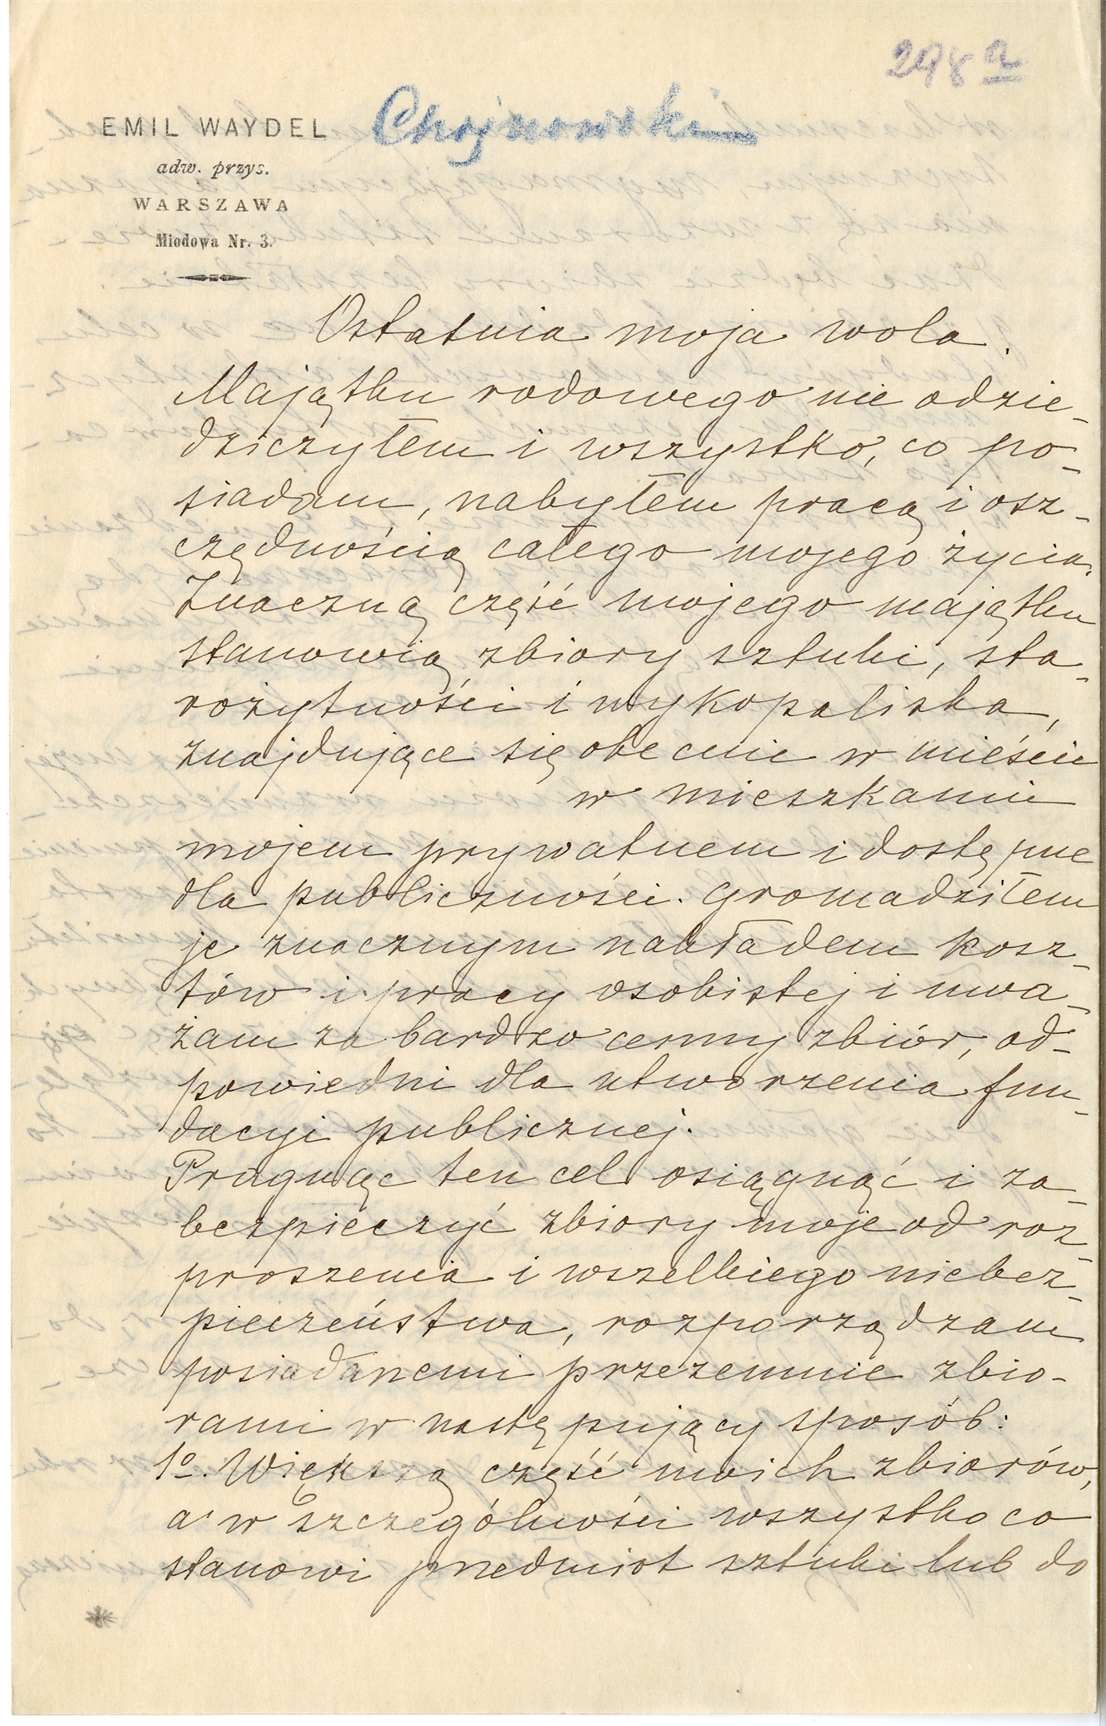 298 a
Chojnowski
EMIL WAYDEL
adw. przys.
WARSZAWA
Miodowa Nr. 3.
Ostatnia moja wola.
Majątku rodowego nie odzie-
dziczyłem i wszystko, co po-
siadam, nabyłem pracą i osz-
czędnością całego mojego życia.
Znaczną część mojego majątku
stanowią zbiory sztuki, sta-
rożytności i wykopaliska,
znajdujące się obecnie w mieście
w mieszkaniu
mojem prywatnem i dostępne
dla publiczności. Gromadziłem
je znacznym nakładem kosz-
tów i pracy osobistej i uwa-
żam za bardzo cenny zbiór, od-
powiedni dla utworzenia fun-
dacyi publicznej.
Pragnąc ten cel osiągnąć i za-
bezpieczyć zbiory moje od roz-
proszenia i wszelkiego niebez-
pieczeństwa, rozporządzam
posiadanemi przezemnie zbio-
rami w następujący sposób:
1º. Większą część moich zbiorów,
a w szczególności wszystko co
stanowi przedmiot sztuki lub do